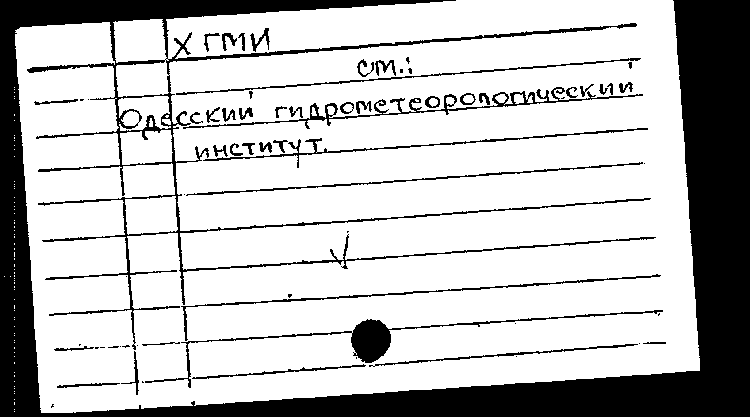 ХГМИ
см.:
Одесский гидрометеорологический
институт.